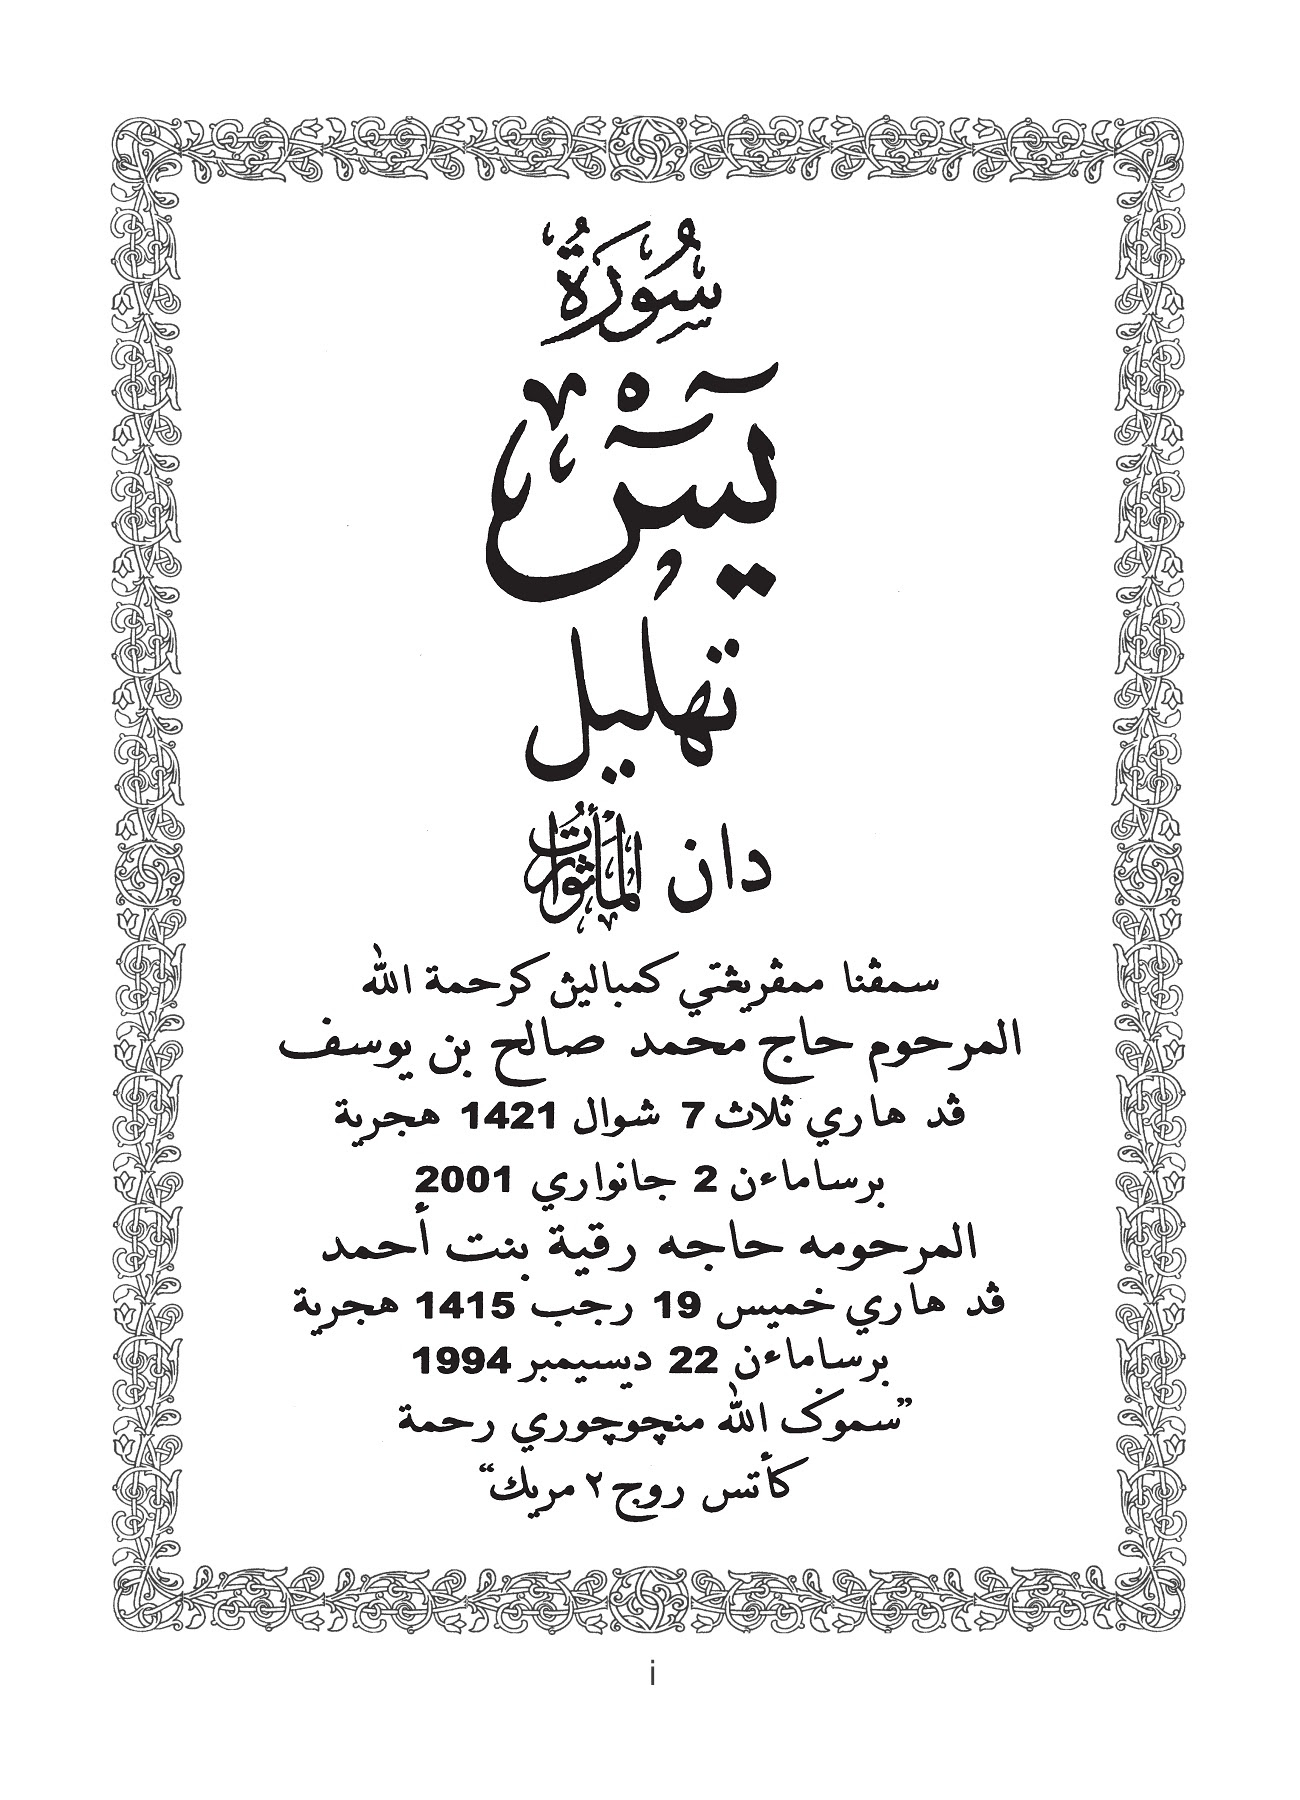 سُورَةُ
يسٓ
تهليل
دان المأثورات
سمڤنا ممڤريڠتي كمباليڽ كرحمة الله
المرحوم حاج محمد صالح بن يوسف
ڤد هاري ثلاث 7 شوال 1421 هجرية
برساماءن 2 جانواري 2001
المرحومه حاجه رقية بنت أحمد
ڤد هاري خميس 19 رجب 1415 هجرية
برساماءن 22 ديسيمبر 1994
”سموݢ الله منچوچوري رحمة
كأتس روح٢ مريك“
i